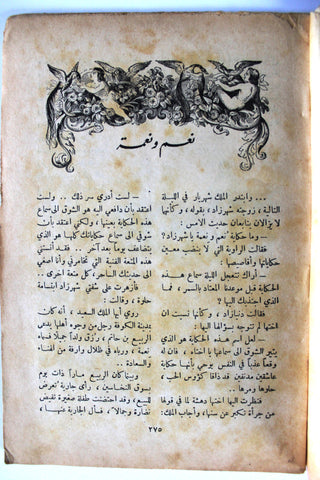 نعم ونعمة
... وابتدر الملك شهريار في الليلة
التالية ، زوجته شهرزاد ، بقوله ، وكأنها
لا يزالان يتابعان حديث الامس :
– وما حكاية نعم و نعمة يا شهرزاد؟
فقالت الراوية التي لا ينضب معين
حكاياتها وأقاصيصها :
– أراك تتعجل الليلة سماع هذه
الحكاية قبل موعدنا المعتاد بالسمر ، فما
الذي اجتذبك اليها ؟
فقالت دنيازاد ، وكأنها نسيت ان
اختها لم تتوجه بسؤالها اليها :
– لعل اسم هذه الحكاية هو الذي
يثير الشوق الى سماعها يا اختاه ، فان له
وقعاً عذباً في النفس يوحي بأنها حكاية
عاشقين مدنفين قد ذاقا كؤوس الحب ،
حلوها ومرها ..
فنظرت اليها اختها دهشة لما في قولها
من جرأة تكبر عن سنها، وأجاب الملك:
– لست أدري سر ذلك .. ولست
أعتقد بأن دافعي اليه هو الشوق الى سماع
هذه الحكاية بعينها ، ولكني أعتقد بأن
شوقي الى سماع حكاياتك كلها هو الذي
يتضاعف يوماً بعد آخر .. فقد أفنتني
هذه المتعة الفنية التي تخامرني وأنا أصغي
الى حديثك الساحر ، كل متعة اخرى ..
فأزهرت على شفتي شهرزاد ابتسامة
حلوة ، وقالت :
روي أيها الملك السعيد ، أنه كان
بمدينة الكوفة رجل من وجوه أهلها يدعى
الربيع بن حاتم ، رزق ولداً جميلا فسماه
نعمة ، ورباه في ظلال وارفة من النعمة
والسعادة ..
وبينما كان الربيع ماراً ذات يوم
بسوق النخاسين ، رأى جارية تعرض
للبيع ، وقد احتضنت طفلة صغيرة تفيض
نضارة وجمالا ، فسأل الجارية عنها،
٢٧٥